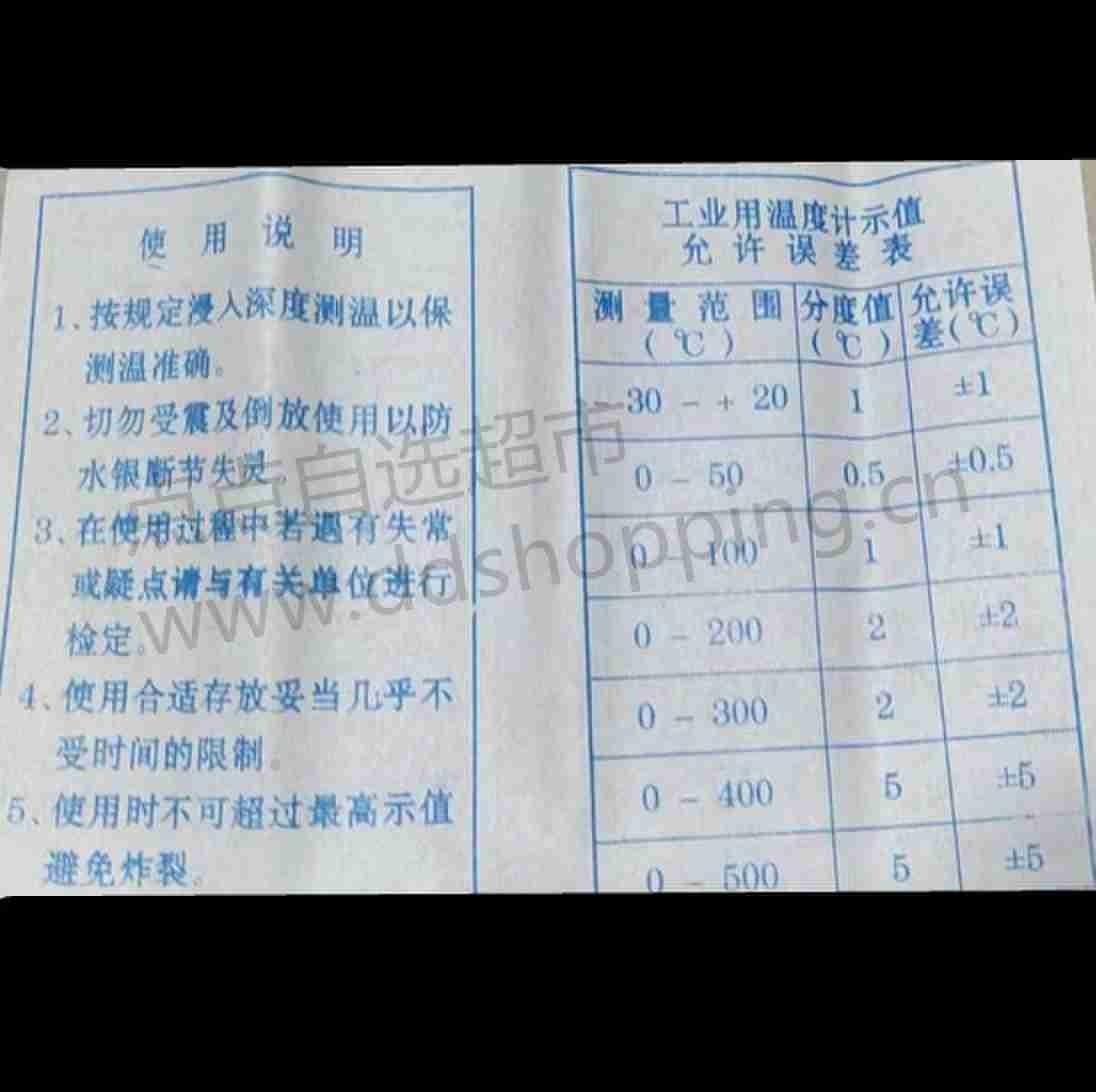 使用说明
1、按规定浸入深度测温以保
测温准确。
2、切勿受震及倒放使用以防
水银断节失灵。
3、在使用过程中若遇有失常
或疑点请与有关单位进行
检定。
4、使用合适存放妥当几乎不
受时间的限制。
5、使用时不可超过最高示值
避免炸裂。
工业用温度计示值
允许误差表
测量范围 分度值 允许误
(℃) (℃) 差(℃)
-30 - + 20 1 ±1
0 - 50 0.5 ±0.5
0 - 100 1 ±1
0 - 200 2 ±2
0 - 300 2 ±2
0 - 400 5 ±5
0 - 500 5 ±5
点点自选超市
www.ddshopping.cn